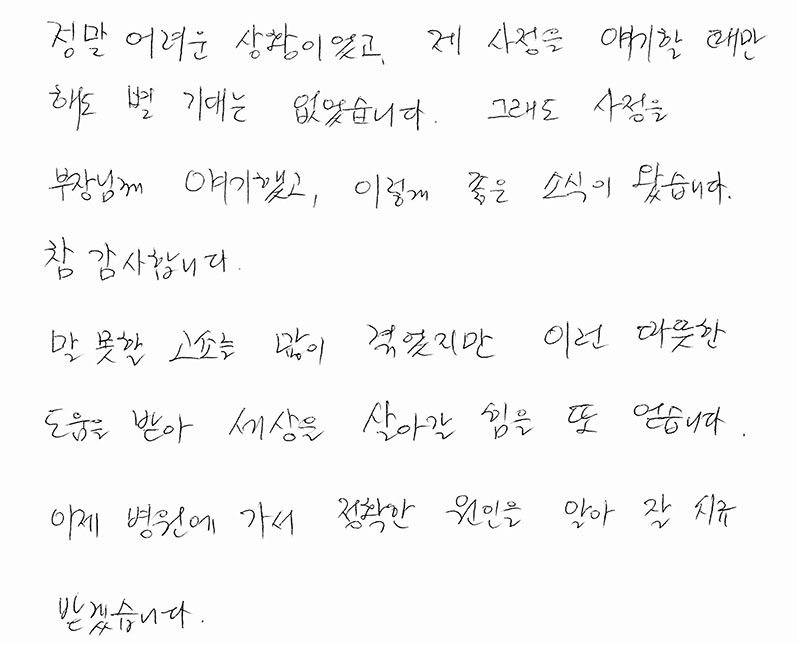 정말 어려운 상황이었고, 제 사정을 얘기할 때만
해도 별 기대는 없었습니다. 그래도 사정을
부장님께 얘기했고, 이렇게 좋은 소식이 왔습니다.
참 감사합니다.
말 못할 고초를 많이 겪었지만 이런 따뜻한
도움을 받아 세상을 살아갈 힘을 또 얻습니다.
이제 병원에 가서 정확한 원인을 알아 잘 치료
받겠습니다.